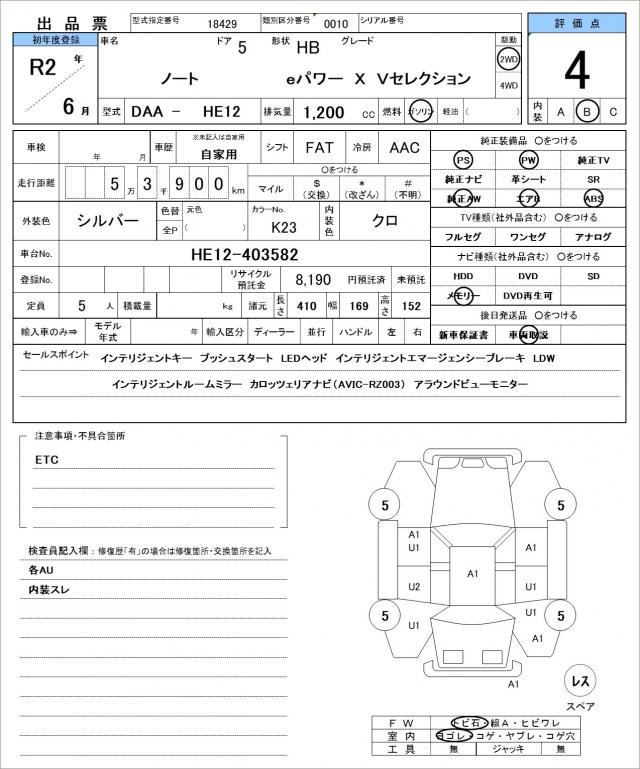 出品票 型式指定番号 18429 類別区分番号 0010 シリアル番号 評価点
初年度登録 車名 ドア 5 形状 HB グレード 駆動
R2 年 ノート eパワー X Vセレクション 2WD 4
4WD
6 月 型式 DAA - HE12 排気量 1,200 cc 燃料 ガソリン 軽油 ( ) 内装 A B C
車検 年 月 車歴 ※未記入は自家用 自家用 シフト FAT 冷房 AAC 純正装備品 〇をつける
PS PW 純正TV
走行距離 5 万 3 千 9 0 0 km 〇をつける マイル $ (交換) * (改ざん) # (不明) 純正ナビ 革シート SR
純正AW エアB ABS
外装色 シルバー 色替 元色 全P ( ) カラーNo. K23 内装色 クロ TV種類(社外品含む) 〇をつける
フルセグ ワンセグ アナログ
車台No. HE12-403582 ナビ種類(社外品含む) 〇をつける
登録No. リサイクル預託金 8,190 円預託済 未預託 HDD DVD SD
定員 5 人 積載量 kg 諸元 長さ 410 幅 169 高さ 152 メモリー DVD再生可
後日発送品 〇をつける
輸入車のみ⇒ モデル年式 年 輸入区分 ディーラー 並行 ハンドル 左 右 新車保証書 車両取説
セールスポイント インテリジェントキー プッシュスタート LEDヘッド インテリジェントエマージェンシーブレーキ LDW
インテリジェントルームミラー カロッツェリアナビ(AVIC-RZ003) アラウンドビューモニター
注意事項・不具合箇所
ETC
検査員記入欄:修復歴「有」の場合は修復箇所・交換箇所を記入
各AU
内装スレ
5 5
A1
U1 U1
A1
U2 U1
5 U1 U1 5
A1
A1
レス
スペア
FW トビ石・線A・ヒビワレ
室内 ヨゴレ・コゲ・ヤブレ・コゲ穴
工具 無 ジャッキ 無